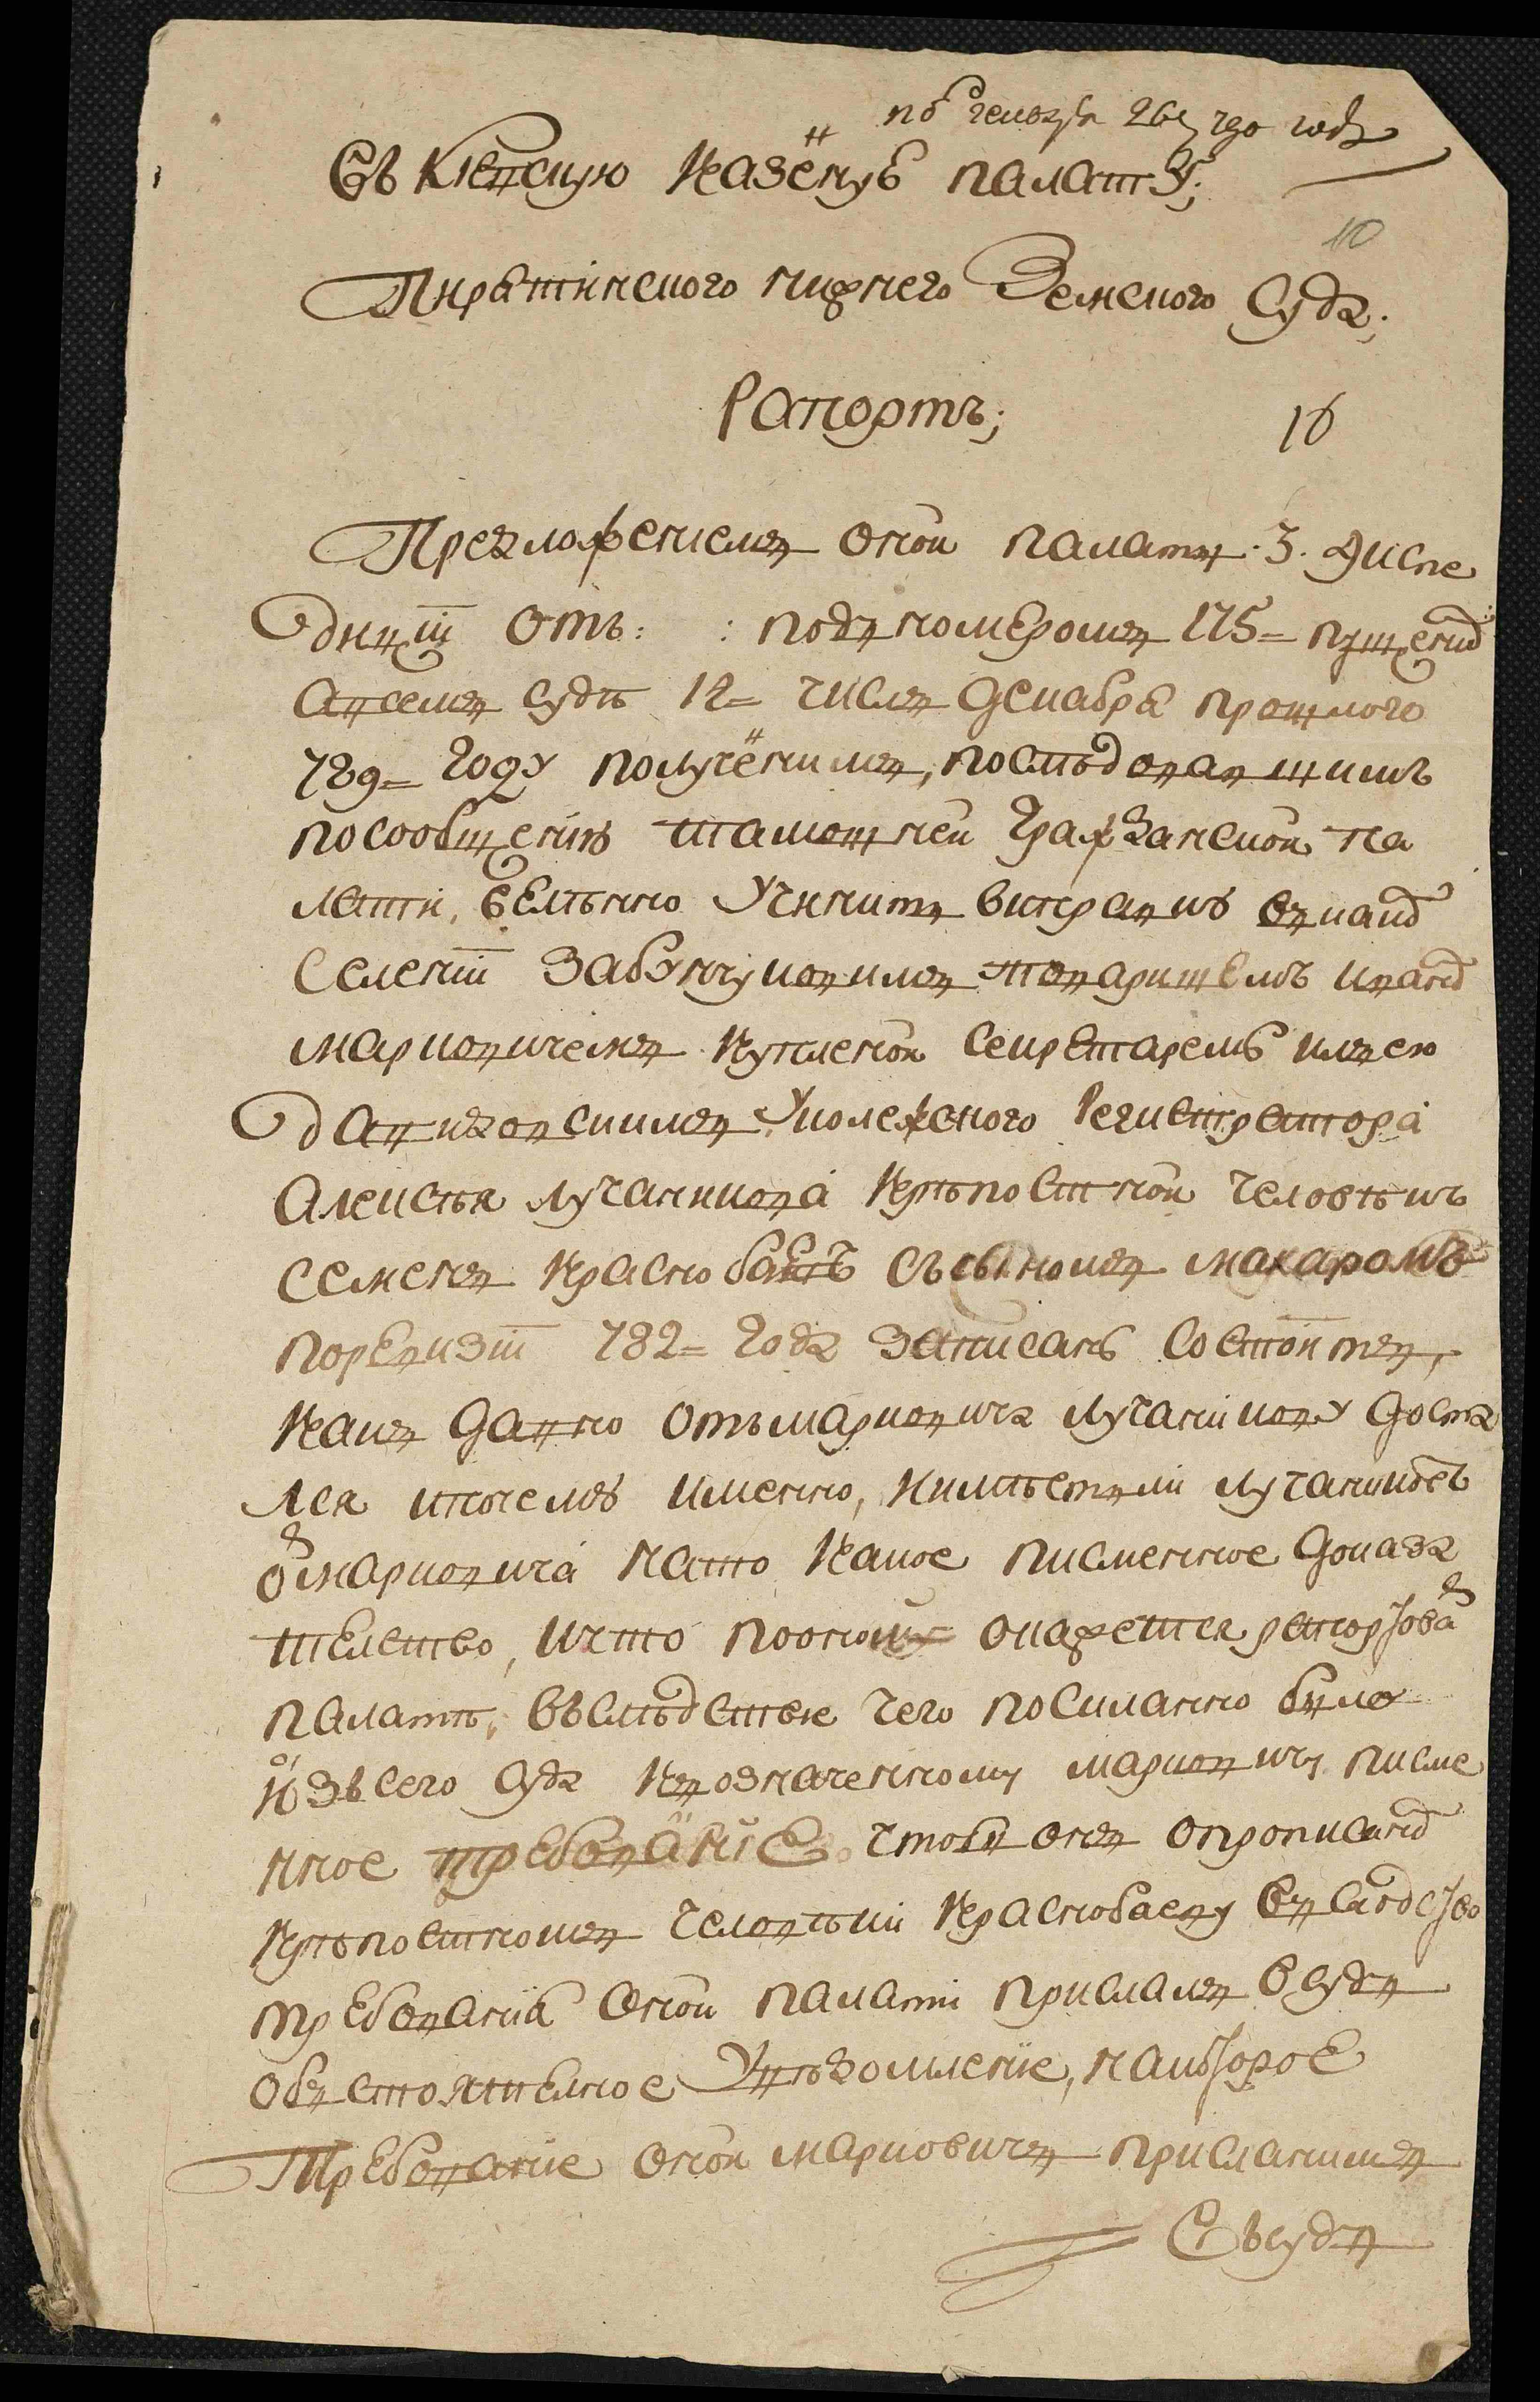 генваря 26 790 года
Въ Киевскую казеную палату;
10
Пирятинского нижнего Земского Суда;
Рапортъ;
16
Предложениемъ оной палаты: 3: Экспе
диціи отъ: : подъ номеромъ 175= пущеной
а всемъ судѣ 12= числа декабря прошлого
789= году полученимъ, последовавшимъ
посообщенію тамошней гражданской па
латы, велѣнно учинить виправкъ
селеніи Забунчуковимъ товаришемъ Иваномъ
марковичемъ купленой секретаремъ
давидовскимъ, уколежского регистратора
алексѣя лучанинова крѣпостной человѣкъ
семенъ краснобаевъ съсыномъ макаромъ
поревизіи 782= года записанъ состоитъ,
какъ давно отъмарковича лучанинову доста
лся ипочему именно, иимѣетъли лучаниновъ
отмарковича нато какое писменное доказа
телство, ичто пооному окажется рапортоват
палатѣ, въслѣдствие чего посиланно было
изъсего суда къозначенному марковичу писме
нное требование, чтобы онъ опрописаном
крѣпостномъ человѣкѣ краснобаеву въсходство
требованія оной палаты прислалъ всудъ
объстоятелное увѣдомление, накоторое
требование оной марковичъ присланимъ
въсудъ